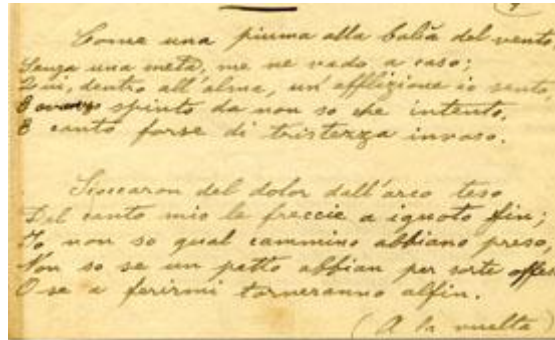 Come una piuma alla balìa del vento
Senza una meta, me ne vado a caso;
Qui, dentro all'alma, un'afflizione io sento,
E spinto da non so che intento,
E canto forse di tristezza invaso.
Scoccaron del dolor dall'arco teso
Del canto mio le freccie a ignoto fin;
Io non so qual cammino abbiano preso,
Non so se un petto abbian per sorte offeso
O se a ferirmi torneranno alfin.
(A la vuelta)